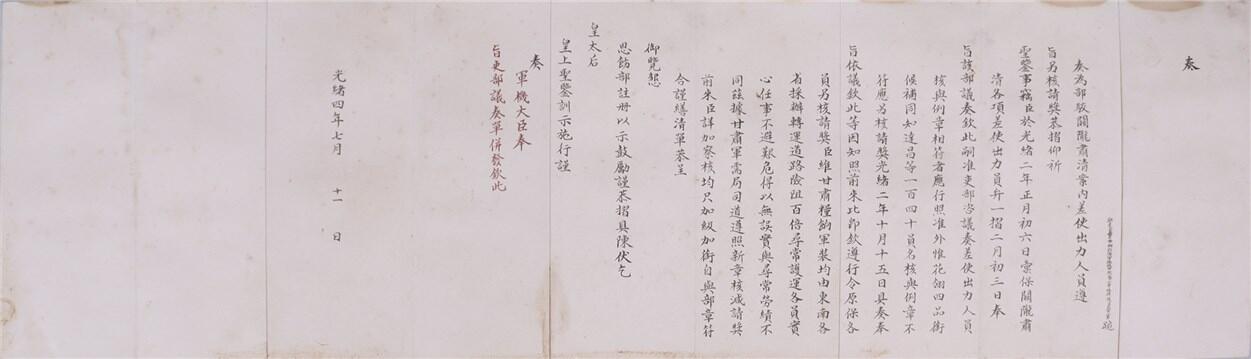 奏
跪
奏為部駁關隴肅清案內差使出力人員遵
旨另核請獎恭摺仰祈
聖鑒事竊臣於光緒二年正月初六日彙保關隴肅
清各項差使出力員弁一摺二月初三日奉
旨該部議奏欽此嗣准吏部咨議奏差使出力人員
核與例章相符者應行照准外惟花翎四品銜
候補同知達昌等一百四十員名核與例章不
符應另核請獎光緒二年十月十五日具奏奉
旨依議欽此等因知照前來比即欽遵行令原保各
員另核請獎臣維甘肅糧餉軍裝均由東南各
省採辦轉運道路險阻百倍尋常護運各員實
心任事不避艱危得以無誤實與尋常勞績不
同茲據甘肅軍需局司道遵照新章核減請獎
前來臣詳加察核均只加級加銜自與部章符
合謹繕清單恭呈
御覽懇
恩飭部註冊以示鼓勵謹恭摺具陳伏乞
皇太后
皇上聖鑒訓示施行謹
奏
軍機大臣奉
旨吏部議奏單併發欽此
光緒四年七月 十一 日